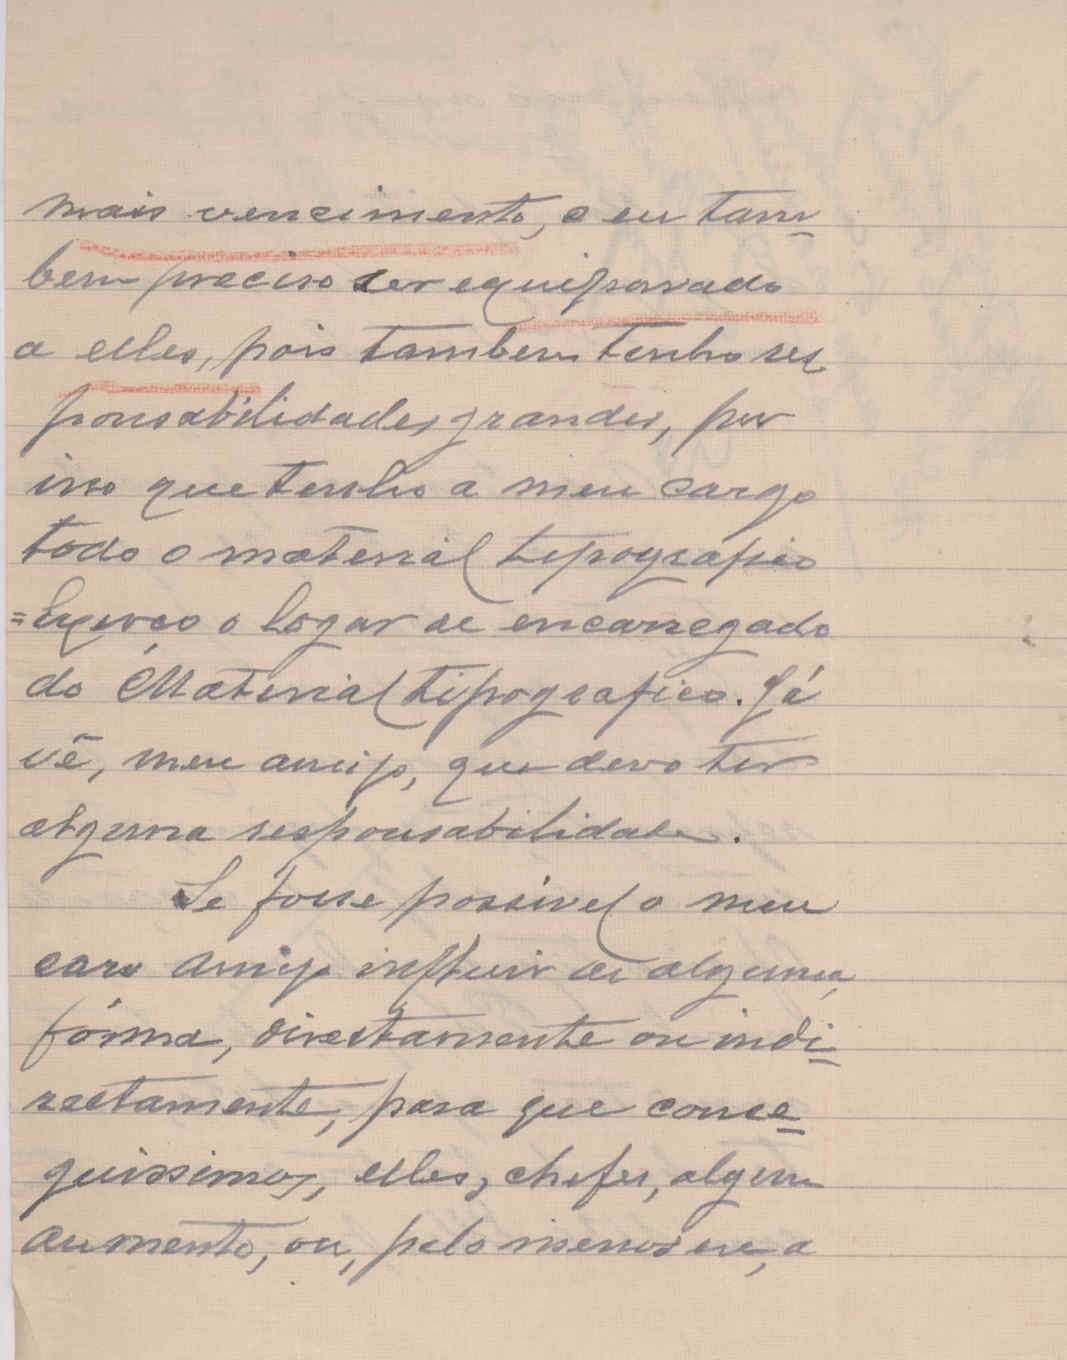 mais vencimento, e eu tam-
bem preciso ser equiparado
a elles, pois tambem tenho res
ponsabilidades grandes, por
isso que tenho a meu cargo
todo o material tipografico
=Exerço o logar de encarregado
do Material tipografico. Já
vê, meu amigo, que devo ter
alguma responsabilidade.
Se fosse possivel o meu
caro amigo influir de alguma
fórma, directamente ou indi-
rectamente, para que conse-
guissimos, elles, chefes, algum
aumento, ou, pelo menos eu, a